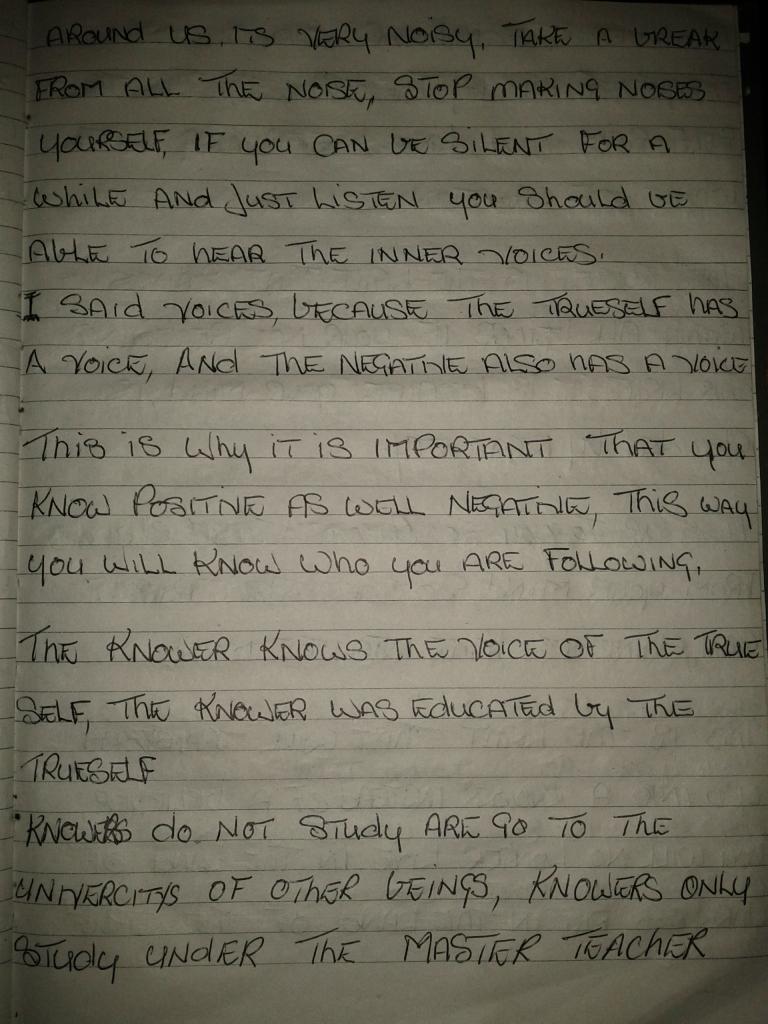 AROUND US, ITS VERY NOISY, TAKE A BREAK
FROM ALL THE NOISE, STOP MAKING NOSES
YOURSELF, IF YOU CAN BE SILENT FOR A
WHILE AND JUST LISTEN YOU SHOULD BE
ABLE TO HEAR THE INNER VOICES.
I SAID VOICES, BECAUSE THE TRUESELF HAS
A VOICE, AND THE NEGATIVE ALSO HAS A VOICE
THIS IS WHY IT IS IMPORTANT THAT YOU
KNOW POSITIVE AS WELL NEGATIVE, THIS WAY
YOU WILL KNOW WHO YOU ARE FOLLOWING,
THE KNOWER KNOWS THE VOICE OF THE TRUE
SELF, THE KNOWER WAS EDUCATED BY THE
TRUESELF
KNOWERS DO NOT STUDY ARE GO TO THE
UNIVERCITYS OF OTHER BEINGS, KNOWERS ONLY
STUDY UNDER THE MASTER TEACHER